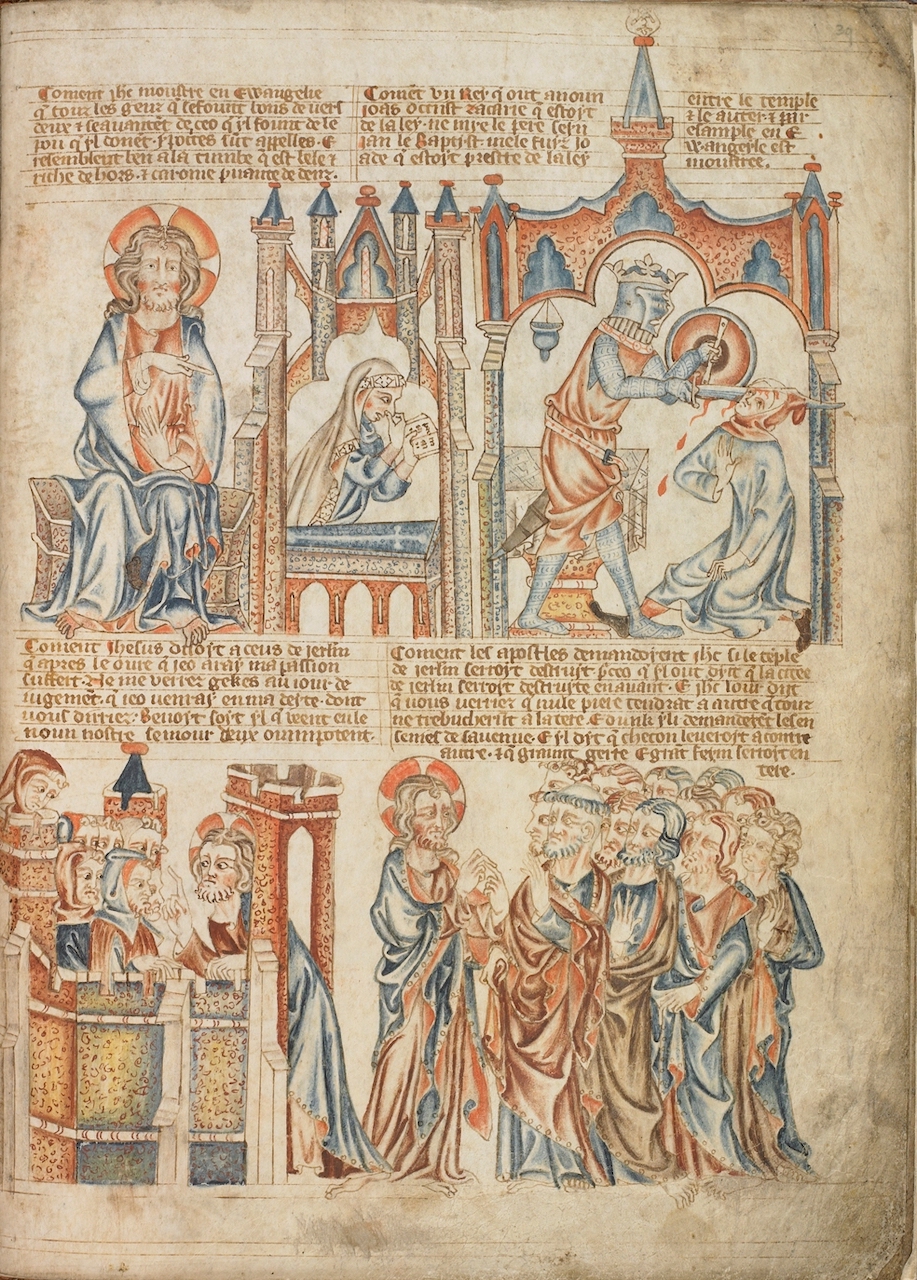 Coment ihc moustre en Ewangelie
q touz les geuz q se fount bons de vers
deux & seavauntet de ceo q yl fount de le
q yl donet. ypocres sūt appelles. E
resemblent ben a la tumbe q est bele &
riche de hors. & caroine puante de denz.
Comēt vn Rey q out a noun
ioas occist zacarie q estoyt
de la ley. ne mie le pere seīn
Jan le Baptist. mele fuiz jo
ade q estoyt prestre de la ley
entre le temple
& le auter. & par
esample en E
wangeyle est
moustree.
39
Coment Jhesus disoyt a ceus de jerlm
q apres le oure q jeo aray ma passion
suffert. Ne me verrez gekes au iour de
iugemēt. q ieo venray en ma deyte. dont
vous dirriez. Benoyt soyt yl q veent en le
noun nostre seinour deux omnipotent.
Coment les apostles demandoyent ihc si le tēple
de jerlm serroyt destruyt pceo q yl out dyt q la citee
de jerlm serroyt destruyte en avant. E ihc lour dyt
q vous verriez q nule piere tendrat a autre q tour
ne trebucherūt a la tere. E dunk yli demanderēt les en
senies de sa venue. E yl dyt q checon leveroyt a contre
autre. & q graunt gerre E grāt feym serroyt en
tere.